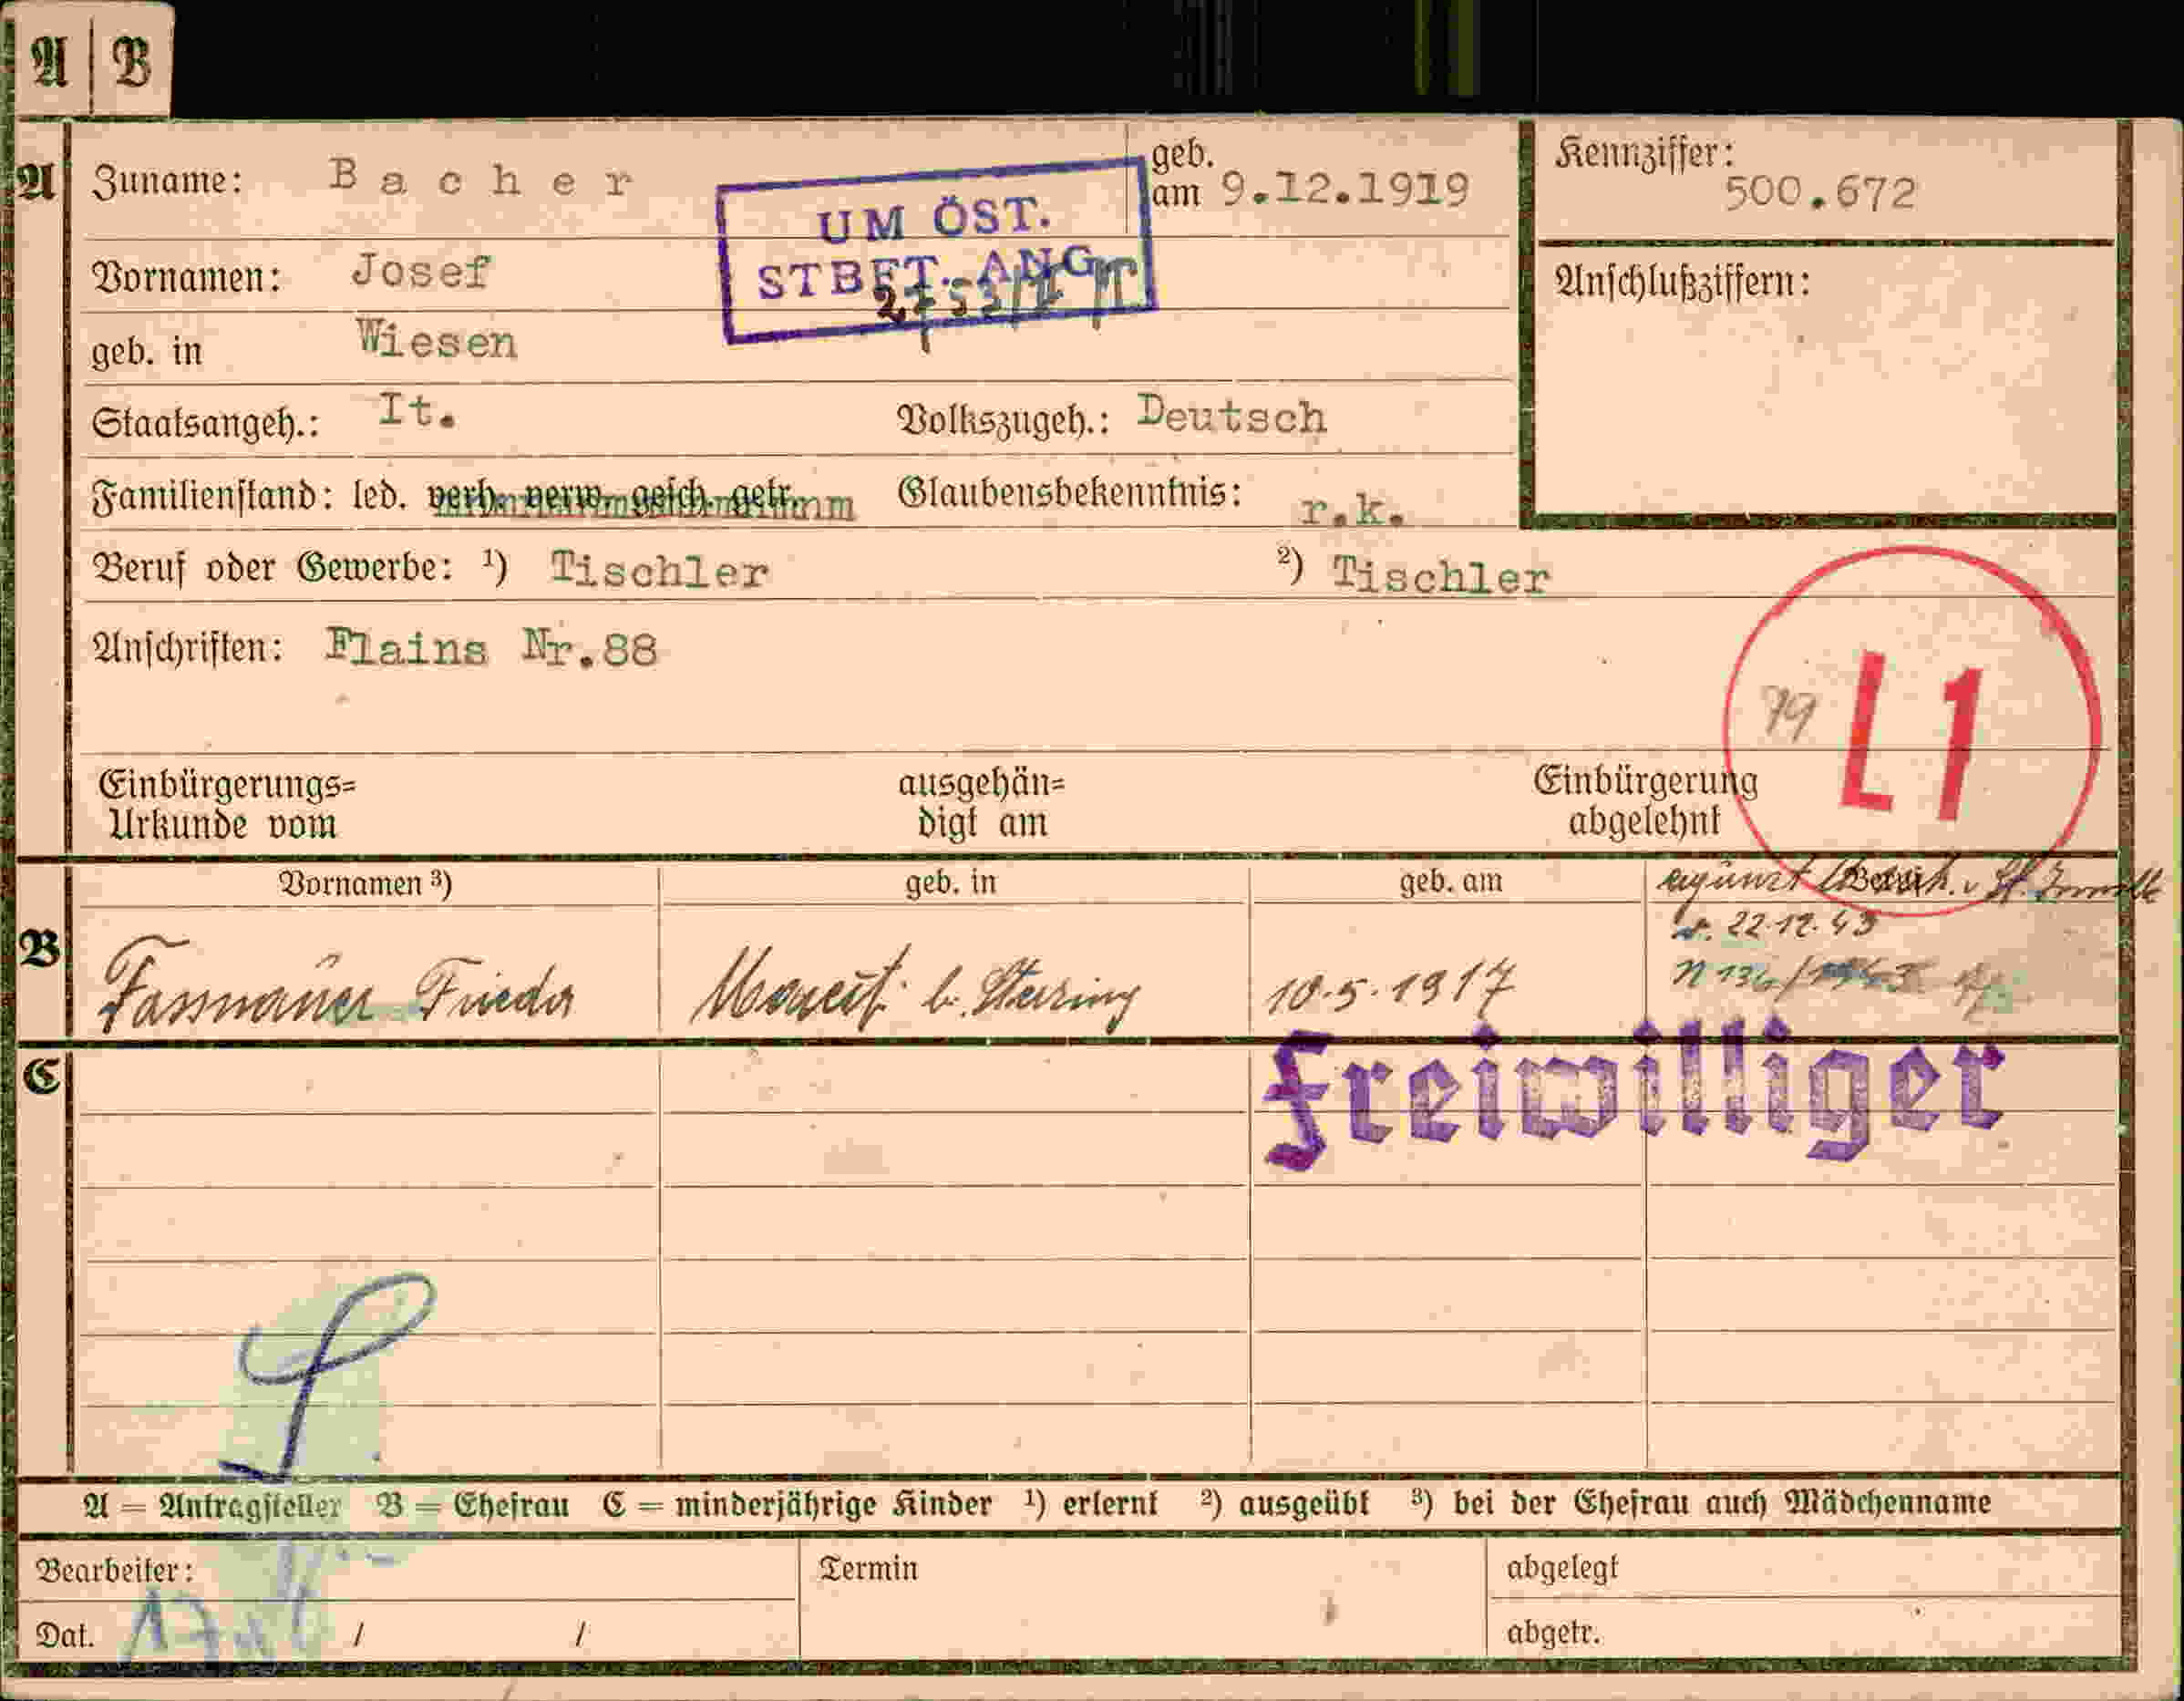 A | B
A Zuname: Bacher geb. am 9.12.1919 Kennziffer: 500.672
UM ÖST.
STBFT. ANG
Vornamen: Josef Anschlußziffern:
geb. in Wiesen
Staatsangeh.: It. Volkszugeh.: Deutsch
Familienstand: led. verh. verw. gesch. getr. Glaubensbekenntnis: r.k.
Beruf oder Gewerbe: ¹) Tischler ²) Tischler
Anschriften: Flains Nr.88
79 L 1
Einbürgerungs= ausgehän= Einbürgerung
Urkunde vom digt am abgelehnt
Vornamen ³) geb. in geb. am
v. 22.12.43
B Fassnauer Frieda b. Sterzing 10.5.1917
Freiwilliger
C
A = Antragsteller B = Ehefrau C = minderjährige Kinder ¹) erlernt ²) ausgeübt ³) bei der Ehefrau auch Mädchenname
Bearbeiter: Termin abgelegt
Dat. / / abgetr.